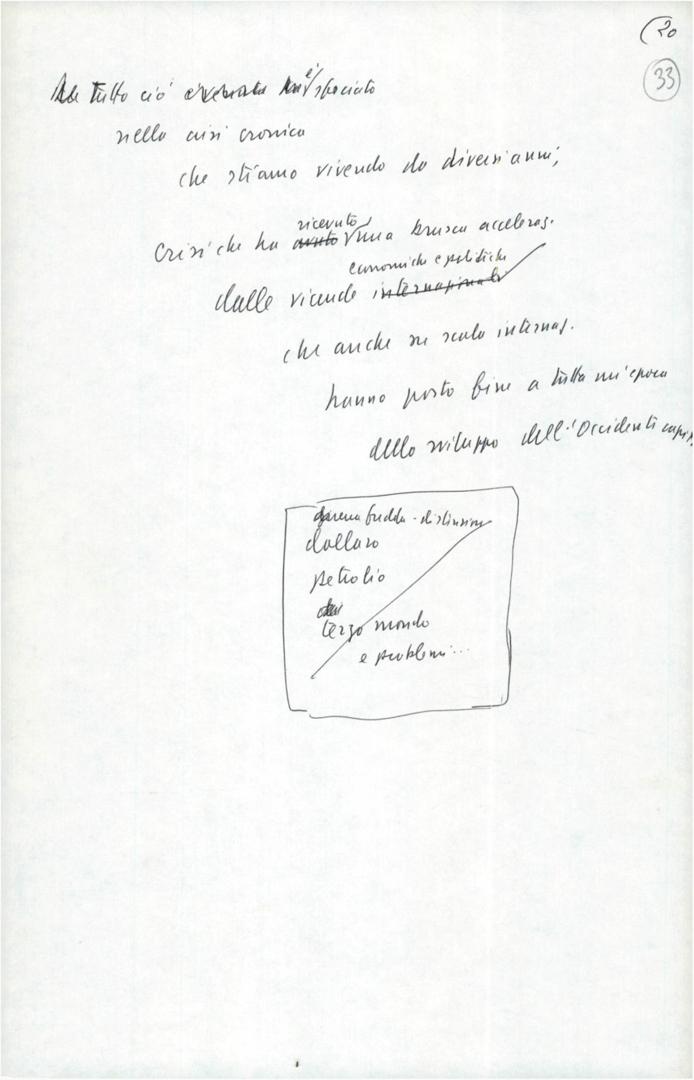 (20
33
tutto ciò è sfociato
nella crisi cronica
che stiamo vivendo da diversi anni,
crisi che ha avuto ricevuto una brusca acceleraz.
dalle vicende internazionali economiche e politiche
che anche su scala internaz.
hanno posto fine a tutta un'epoca
dello sviluppo dell'Occidente capit.
guerra fredda - distensione
dollaro
petrolio
terzo mondo
e problemi...